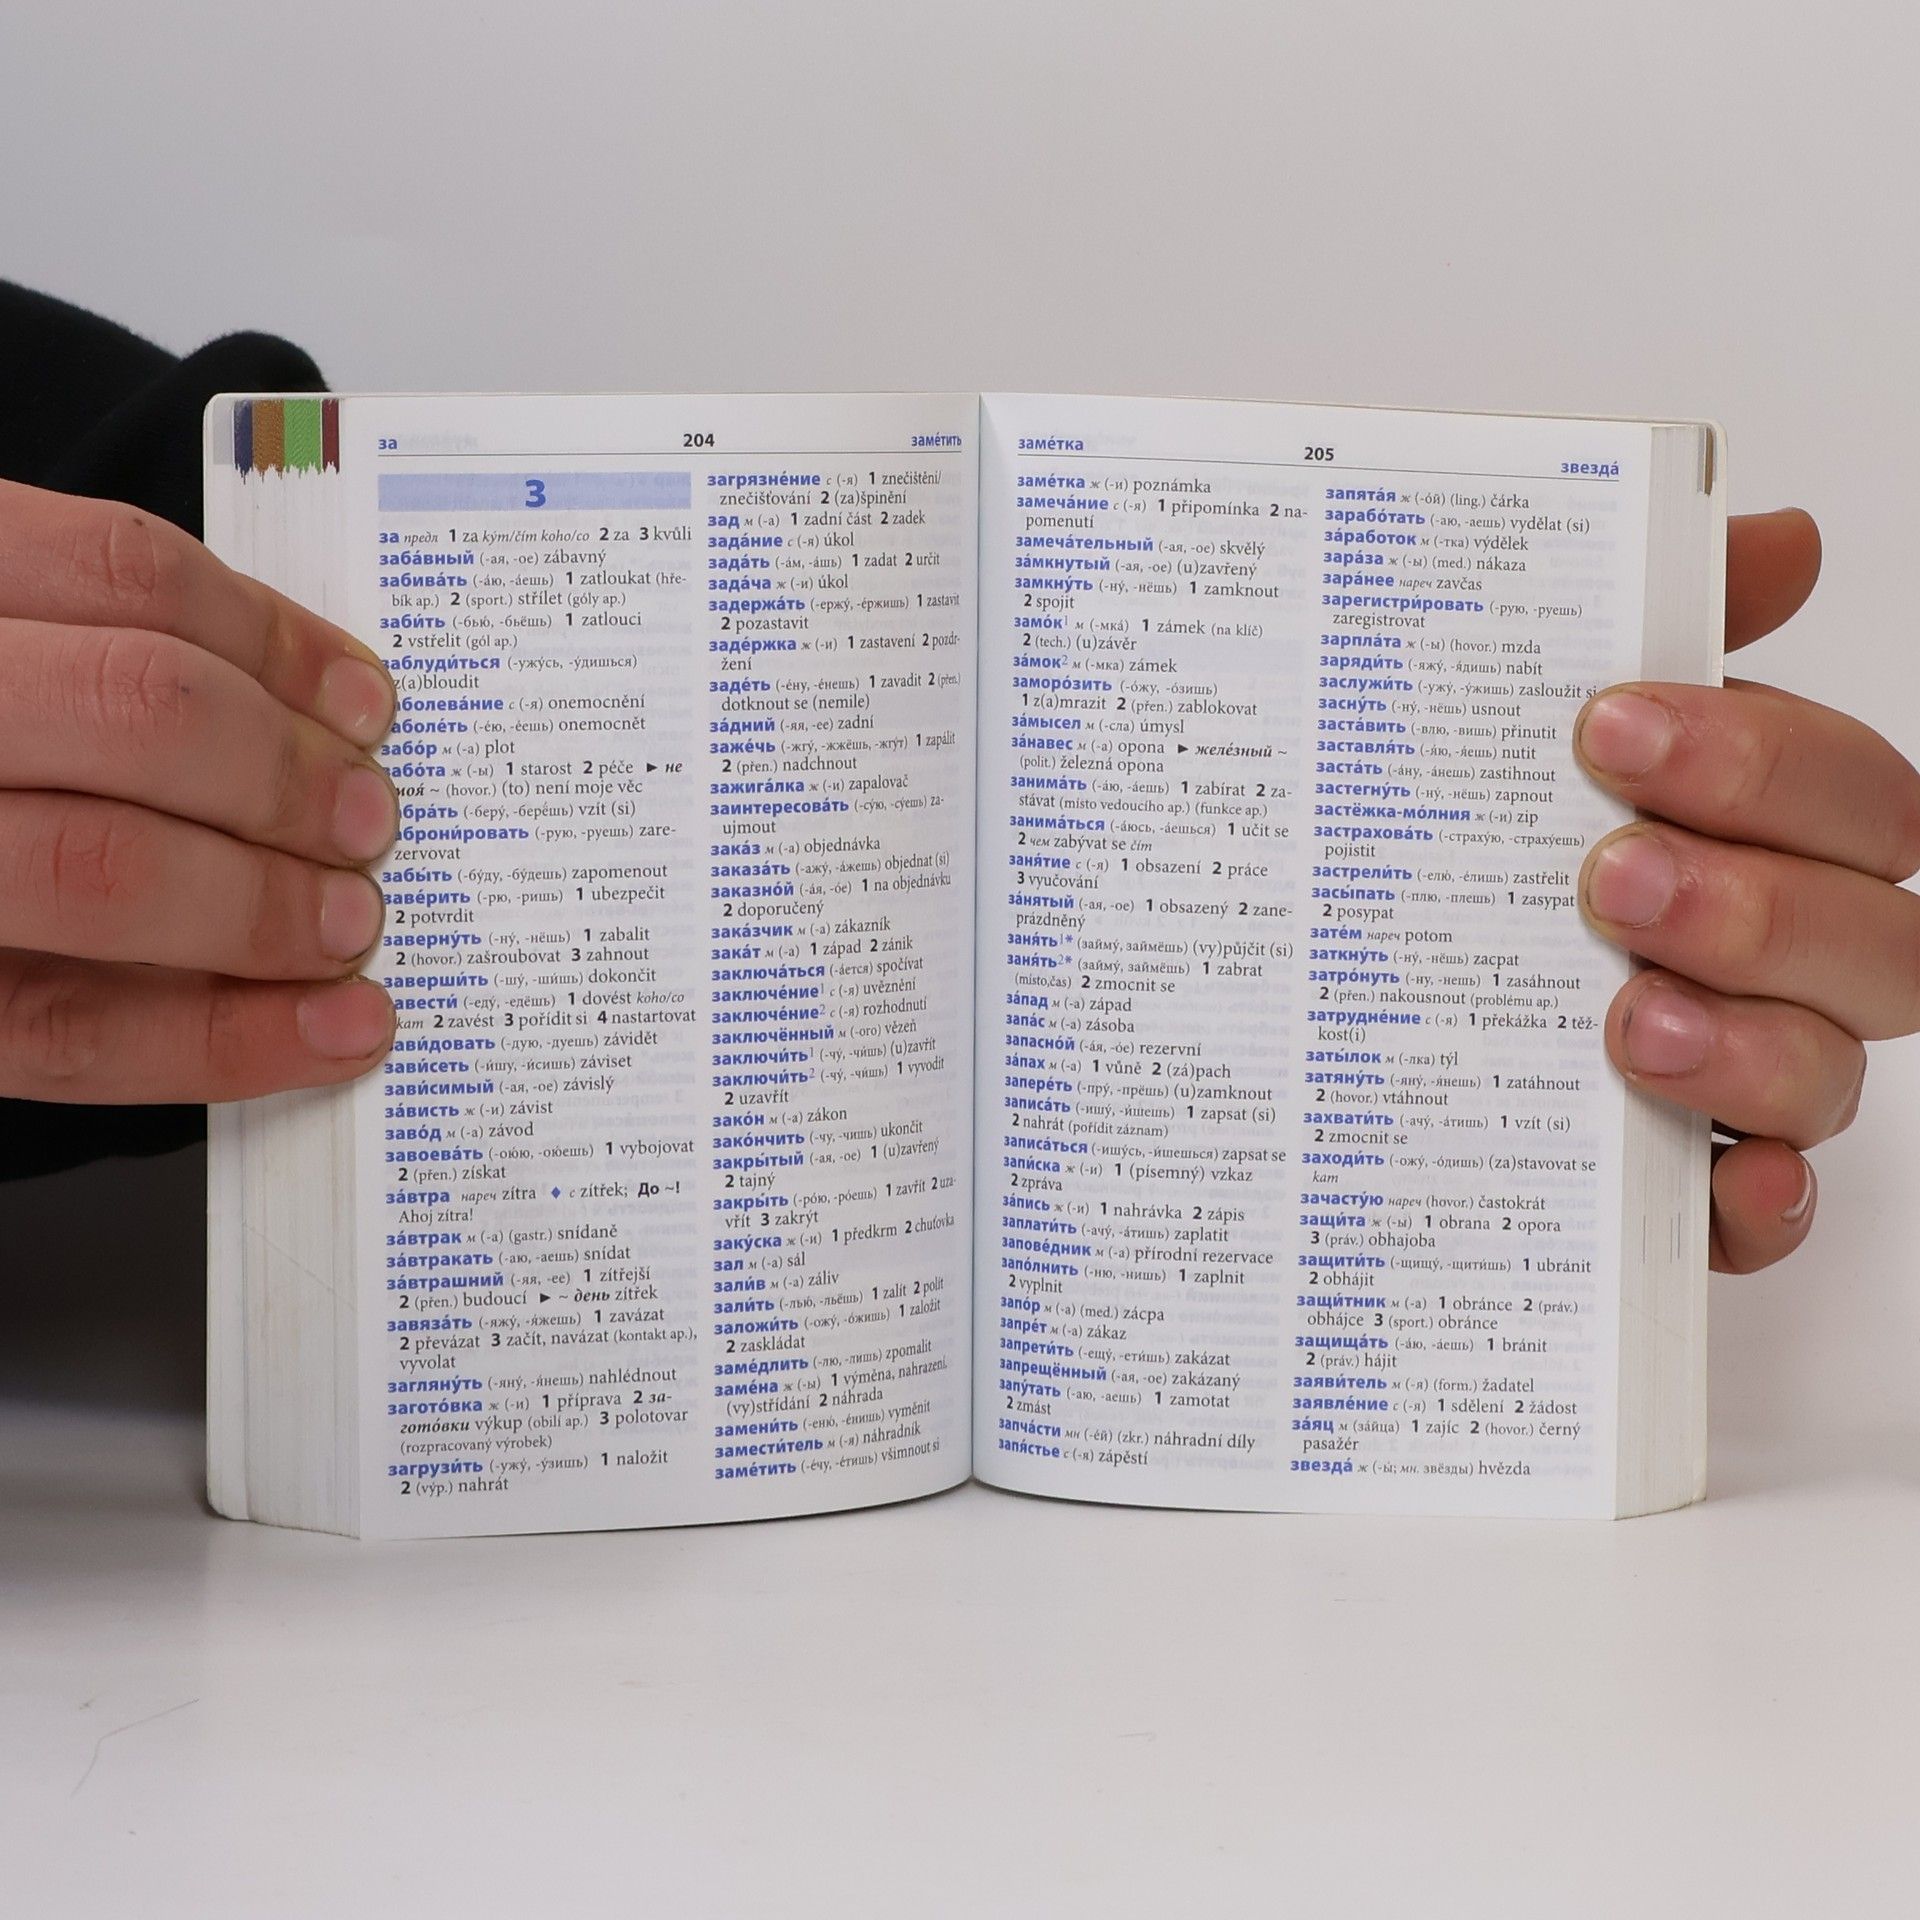 за 204 заме́тить
З
за предл 1 za kým/čím koho/co 2 za 3 kvůli
заба́вный (-ая, -ое) zábavný
забива́ть (-а́ю, -а́ешь) 1 zatloukat (hře-
bík ap.) 2 (sport.) střílet (góly ap.)
заби́ть (-бью́, -бьёшь) 1 zatlouci
2 vstřelit (gól ap.)
заблуди́ться (-ужу́сь, -у́дишься)
z(a)bloudit
аболева́ние с (-я) onemocnění
аболе́ть (-е́ю, -е́ешь) onemocnět
забо́р м (-а) plot
забо́та ж (-ы) 1 starost 2 péče ► не
моя́ ~ (hovor.) (to) není moje věc
абра́ть (-беру́, -берёшь) vzít (si)
аброни́ровать (-рую, -руешь) zare-
zervovat
забы́ть (-бу́ду, -бу́дешь) zapomenout
заве́рить (-рю, -ришь) 1 ubezpečit
2 potvrdit
заверну́ть (-ну́, -нёшь) 1 zabalit
2 (hovor.) zašroubovat 3 zahnout
заверши́ть (-шу́, -ши́шь) dokončit
авести́ (-еду́, -едёшь) 1 dovést koho/co
kam 2 zavést 3 pořídit si 4 nastartovat
зави́довать (-дую, -дуешь) závidět
зави́сеть (-и́шу, -и́сишь) záviset
зави́симый (-ая, -ое) závislý
за́висть ж (-и) závist
заво́д м (-а) závod
завоева́ть (-ою́ю, -ою́ешь) 1 vybojovat
2 (přen.) získat
за́втра нареч zítra ♦ с zítřek; До ~!
Ahoj zítra!
за́втрак м (-а) (gastr.) snídaně
за́втракать (-аю, -аешь) snídat
за́втрашний (-яя, -ее) 1 zítřejší
2 (přen.) budoucí ► ~ день zítřek
завяза́ть (-яжу́, -я́жешь) 1 zavázat
2 převázat 3 začít, navázat (kontakt ap.),
vyvolat
загляну́ть (-яну́, -я́нешь) nahlédnout
загото́вка ж (-и) 1 příprava 2 за-
гото́вки výkup (obilí ap.) 3 polotovar
(rozpracovaný výrobek)
загрузи́ть (-ужу́, -у́зишь) 1 naložit
2 (výp.) nahrát
загрязне́ние с (-я) 1 znečištění/
znečišťování 2 (za)špinění
зад м (-а) 1 zadní část 2 zadek
зада́ние с (-я) úkol
зада́ть (-а́м, -а́шь) 1 zadat 2 určit
зада́ча ж (-и) úkol
задержа́ть (-ержу́, -е́ржишь) 1 zastavit
2 pozastavit
заде́ржка ж (-и) 1 zastavení 2 pozdr-
žení
заде́ть (-е́ну, -е́нешь) 1 zavadit 2 (přen.)
dotknout se (nemile)
за́дний (-яя, -ее) zadní
заже́чь (-жгу́, -жжёшь, -жгу́т) 1 zapálit
2 (přen.) nadchnout
зажига́лка ж (-и) zapalovač
заинтересова́ть (-су́ю, -су́ешь) za-
ujmout
зака́з м (-а) objednávka
заказа́ть (-ажу́, -а́жешь) objednat (si)
заказно́й (-а́я, -о́е) 1 na objednávku
2 doporučený
зака́зчик м (-а) zákazník
зака́т м (-а) 1 západ 2 zánik
заключа́ться (-а́ется) spočívat
заключе́ние1 с (-я) uvěznění
заключе́ние2 с (-я) rozhodnutí
заключённый м (-ого) vězeň
заключи́ть1 (-чу́, -чи́шь) (u)zavřít
заключи́ть2 (-чу́, -чи́шь) 1 vyvodit
2 uzavřít
зако́н м (-а) zákon
зако́нчить (-чу, -чишь) ukončit
закры́тый (-ая, -ое) 1 (u)zavřený
2 tajný
закры́ть (-ро́ю, -ро́ешь) 1 zavřít 2 uza-
vřít 3 zakrýt
заку́ска ж (-и) 1 předkrm 2 chuťovka
зал м (-а) sál
зали́в м (-а) záliv
зали́ть (-лью́, -льёшь) 1 zalít 2 polít
заложи́ть (-ожу́, -о́жишь) 1 založit
2 zaskládat
заме́длить (-лю, -лишь) zpomalit
заме́на ж (-ы) 1 výměna, nahrazení,
(vy)střídání 2 náhrada
замени́ть (-еню́, -е́нишь) vyměnit
замести́тель м (-я) náhradník
заме́тить (-е́чу, -е́тишь) všimnout si
заме́тка 205 звезда́
заме́тка ж (-и) poznámka
замеча́ние с (-я) 1 připomínka 2 na-
pomenutí
замеча́тельный (-ая, -ое) skvělý
за́мкнутый (-ая, -ое) (u)zavřený
замкну́ть (-ну́, -нёшь) 1 zamknout
2 spojit
замо́к1 м (-мка́) 1 zámek (na klíč)
2 (tech.) (u)závěr
за́мок2 м (-мка) zámek
заморо́зить (-о́жу, -о́зишь)
1 z(a)mrazit 2 (přen.) zablokovat
за́мысел м (-сла) úmysl
за́навес м (-а) opona ► желе́зный ~
(polit.) železná opona
занима́ть (-а́ю, -а́ешь) 1 zabírat 2 za-
stávat (místo vedoucího ap.) (funkce ap.)
занима́ться (-а́юсь, -а́ешься) 1 učit se
2 чем zabývat se čím
заня́тие с (-я) 1 obsazení 2 práce
3 vyučování
за́нятый (-ая, -ое) 1 obsazený 2 zane-
prázdněný
заня́ть1* (займу́, займёшь) (vy)půjčit (si)
заня́ть2* (займу́, займёшь) 1 zabrat
(místo,čas) 2 zmocnit se
за́пад м (-а) západ
запа́с м (-а) zásoba
запасно́й (-а́я, -о́е) rezervní
за́пах м (-а) 1 vůně 2 (zá)pach
запере́ть (-пру́, -прёшь) (u)zamknout
записа́ть (-ишу́, -и́шешь) 1 zapsat (si)
2 nahrát (pořídit záznam)
записа́ться (-ишу́сь, -и́шешься) zapsat se
запи́ска ж (-и) 1 (písemný) vzkaz
2 zpráva
за́пись ж (-и) 1 nahrávka 2 zápis
заплати́ть (-ачу́, -а́тишь) zaplatit
запове́дник м (-а) přírodní rezervace
запо́лнить (-ню, -нишь) 1 zaplnit
2 vyplnit
запо́р м (-а) (med.) zácpa
запре́т м (-а) zákaz
запрети́ть (-ещу́, -ети́шь) zakázat
запрещённый (-ая, -ое) zakázaný
запу́тать (-аю, -аешь) 1 zamotat
2 zmást
запча́сти мн (-е́й) (zkr.) náhradní díly
запя́стье с (-я) zápěstí
запята́я ж (-о́й) (ling.) čárka
зарабо́тать (-аю, -аешь) vydělat (si)
за́работок м (-тка) výdělek
зара́за ж (-ы) (med.) nákaza
зара́нее нареч zavčas
зарегистри́ровать (-рую, -руешь)
zaregistrovat
зарпла́та ж (-ы) (hovor.) mzda
заряди́ть (-яжу́, -я́дишь) nabít
заслужи́ть (-ужу́, -у́жишь) zasloužit si
засну́ть (-ну́, -нёшь) usnout
заста́вить (-влю, -вишь) přinutit
заставля́ть (-я́ю, -я́ешь) nutit
заста́ть (-а́ну, -а́нешь) zastihnout
застегну́ть (-ну́, -нёшь) zapnout
застёжка-мо́лния ж (-и) zip
застрахова́ть (-страху́ю, -страху́ешь)
pojistit
застрели́ть (-елю́, -е́лишь) zastřelit
засы́пать (-плю, -плешь) 1 zasypat
2 posypat
зате́м нареч potom
заткну́ть (-ну́, -нёшь) zacpat
затро́нуть (-ну, -нешь) 1 zasáhnout
2 (přen.) nakousnout (problému ap.)
затрудне́ние с (-я) 1 překážka 2 těž-
kost(i)
заты́лок м (-лка) týl
затяну́ть (-яну́, -я́нешь) 1 zatáhnout
2 (hovor.) vtáhnout
захвати́ть (-ачу́, -а́тишь) 1 vzít (si)
2 zmocnit se
заходи́ть (-ожу́, -о́дишь) (za)stavovat se
kam
зачасту́ю нареч (hovor.) častokrát
защи́та ж (-ы) 1 obrana 2 opora
3 (práv.) obhajoba
защити́ть (-щищу́, -щити́шь) 1 ubránit
2 obhájit
защи́тник м (-а) 1 obránce 2 (práv.)
obhájce 3 (sport.) obránce
защища́ть (-а́ю, -а́ешь) 1 bránit
2 (práv.) hájit
заяви́тель м (-я) (form.) žadatel
заявле́ние с (-я) 1 sdělení 2 žádost
за́яц м (за́йца) 1 zajíc 2 (hovor.) černý
pasažér
звезда́ ж (-ы́; мн. звёзды) hvězda